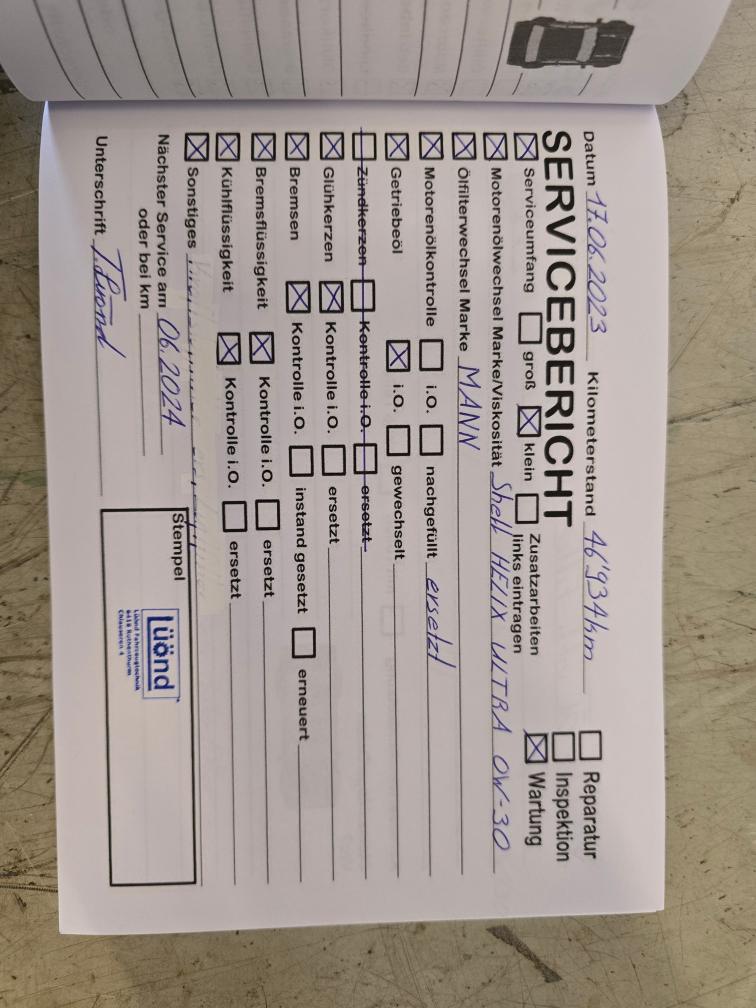 Datum 17.06.2023 Kilometerstand 46'934km
☐ Reparatur
☐ Inspektion
☒ Wartung
SERVICEBERICHT
☒ Serviceumfang ☐ groß ☒ klein ☐ Zusatzarbeiten links eintragen
☒ Motorenölwechsel Marke/Viskosität Shell HELIX ULTRA 0W-30
☒ Ölfilterwechsel Marke MANN
☒ Motorenölkontrolle ☐ i.O. ☐ nachgefüllt ersetzt
☒ Getriebeöl ☒ i.O. ☐ gewechselt
☐ Zündkerzen ☐ Kontrolle i.O. ☐ ersetzt
☒ Glühkerzen ☒ Kontrolle i.O. ☐ ersetzt
☒ Bremsen ☒ Kontrolle i.O. ☐ instand gesetzt ☐ erneuert
☒ Bremsflüssigkeit ☒ Kontrolle i.O. ☐ ersetzt
☒ Kühlflüssigkeit ☒ Kontrolle i.O. ☐ ersetzt
☒ Sonstiges
Nächster Service am 06.2024
oder bei km
Unterschrift T. Lüönd
Stempel
Lüönd
Lüönd Fahrzeugtechnik
6418 Rothenthurm